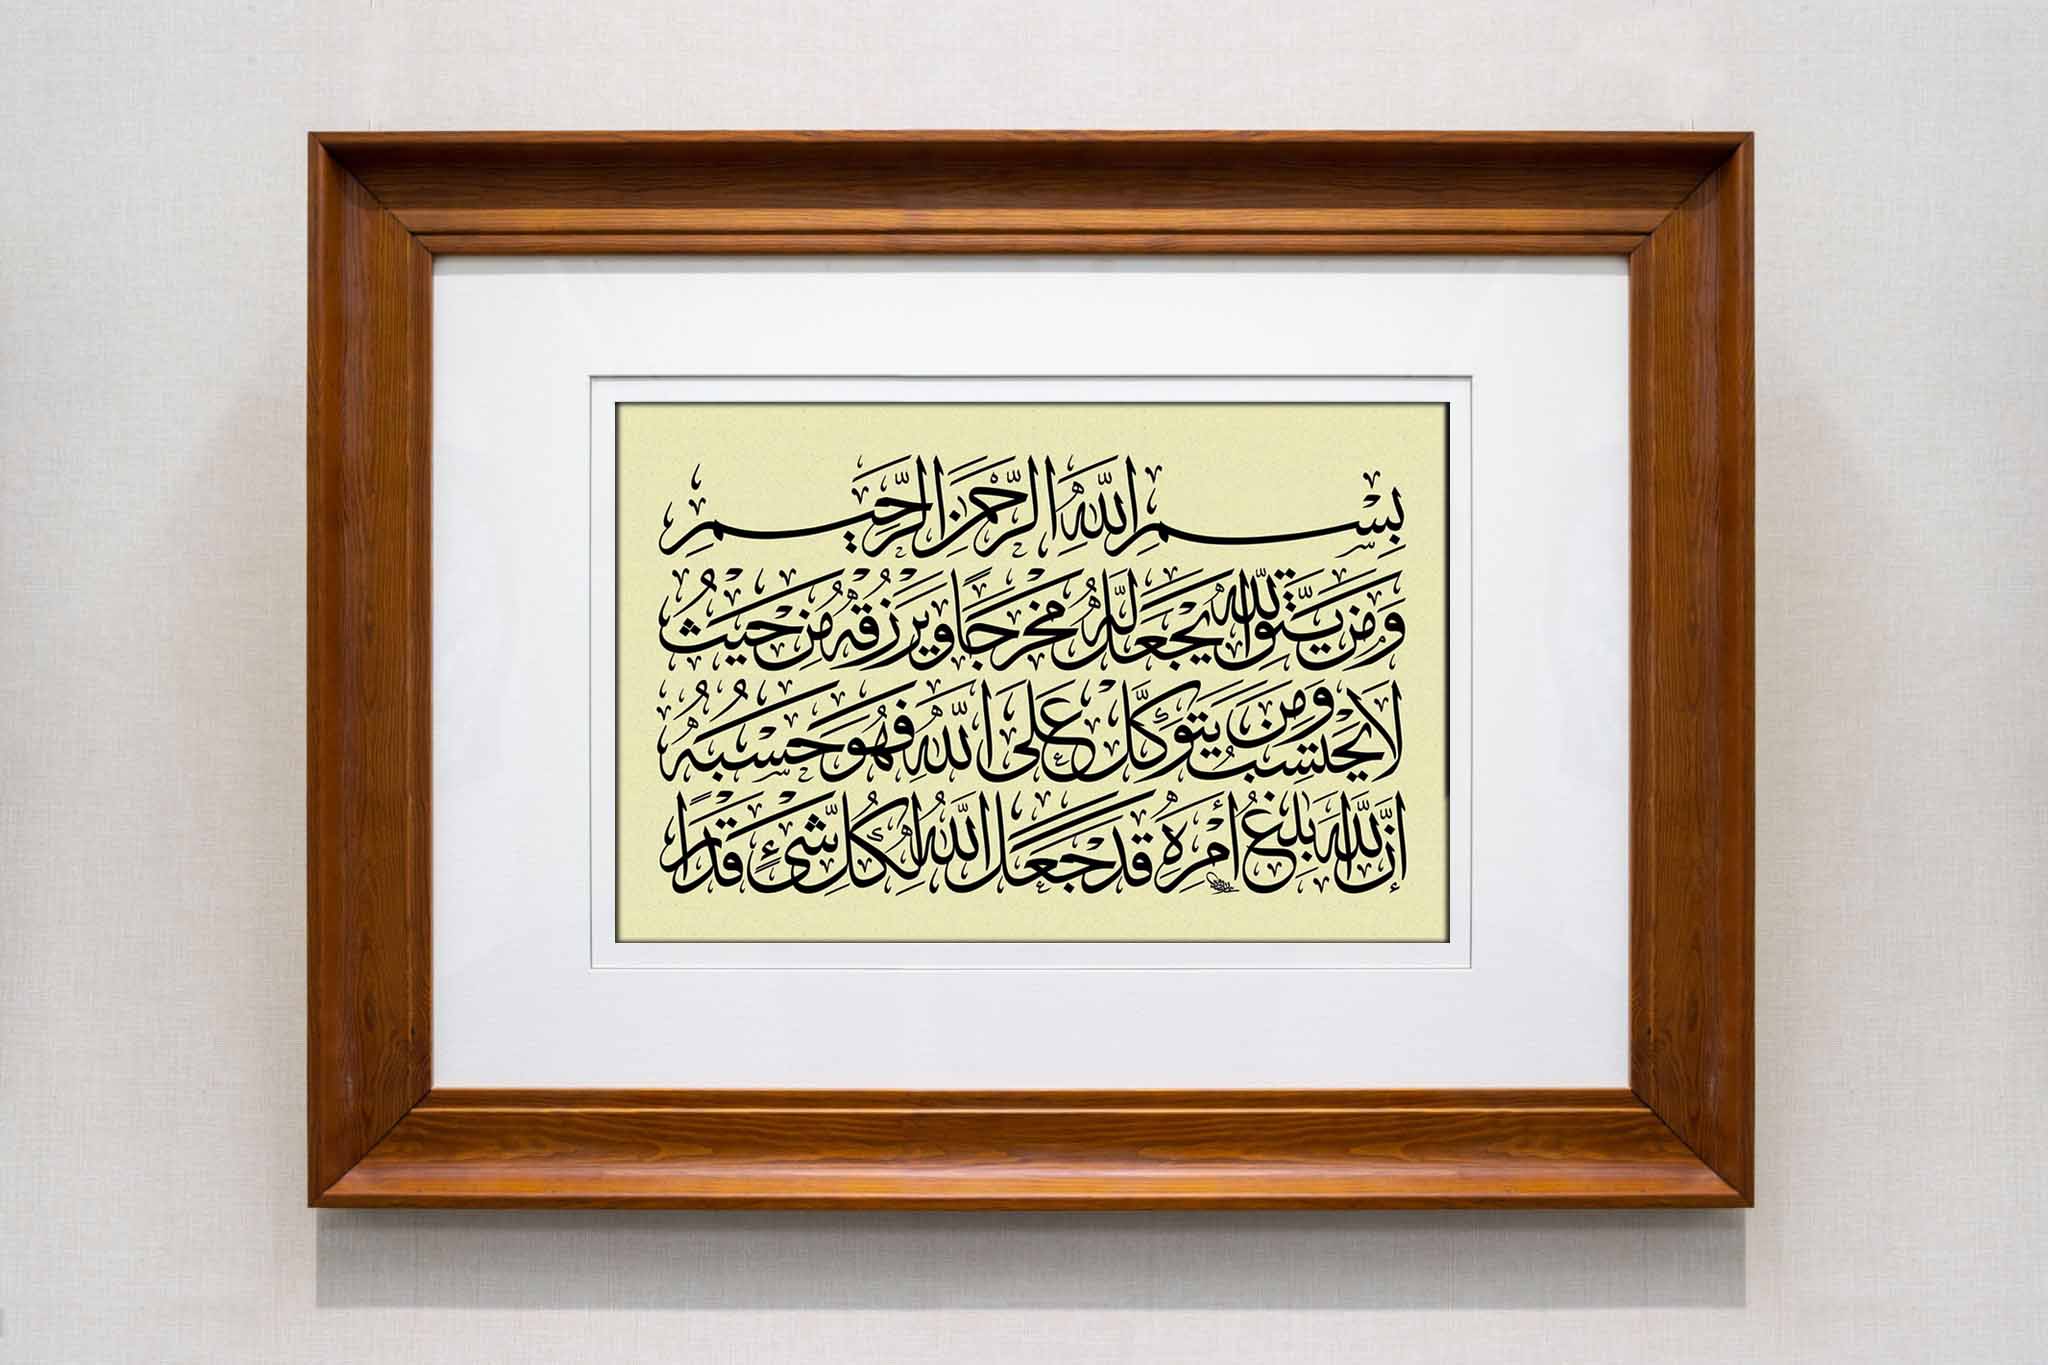 بِسْمِ اللَّهِ الرَّحْمَنِ الرَّحِيمِ
وَمَنْ يَتَّقِ اللَّهَ يَجْعَل لَّهُ مَخْرَجًا وَيَرْزُقْهُ مِنْ حَيْثُ
لَا يَحْتَسِبُ وَمَنْ يَتَوَكَّلْ عَلَى اللَّهِ فَهُوَ حَسْبُهُ
إِنَّ اللَّهَ بَالِغُ أَمْرِهِ قَدْ جَعَلَ اللَّهُ لِكُلِّ شَيْءٍ قَدْرًا